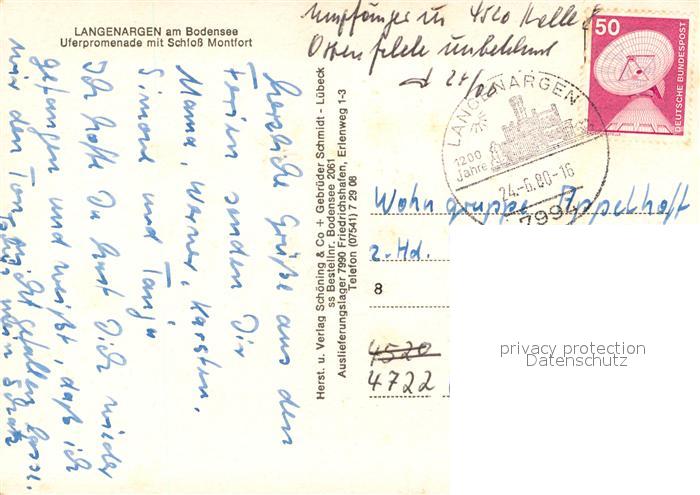 LANGENARGEN am Bodensee
Uferpromenade mit Schloß Montfort
Empfänger in 4520 Melle
unbekannt
50
DEUTSCHE BUNDESPOST
LANGENARGEN
1200
Jahre
24.-6.80-16
7994
Herzliche Grüße aus den
Ferien senden Dir
Mama, Werner, Karsten,
Simone und Tanja
Ich hoffe Du hast Dich wieder
gefangen und weißt, daß ich
mir den Ton nicht gefallen lasse.
Herst. u. Verlag Schöning & Co + Gebrüder Schmidt - Lübeck
ss Bestellnr. Bodensee 2061
Auslieferungslager 7990 Friedrichshafen, Erlenweg 1-3
Telefon (07541) 7 29 08
Wohngruppe Appelhoft
z.Hd.
8
4520
4722
privacy protection
Datenschutz